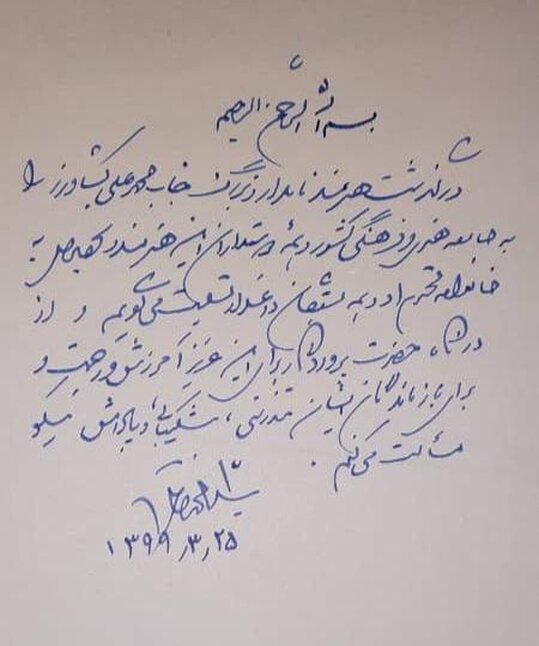 بسم الله الرحمن الرحیم
درگذشت هنرمند نامدار و بزرگ جناب محمد علی کشاورز را
به جامعه هنری و فرهنگی کشور و به همه دوستداران این هنرمند و به
خانواده محترم او و به همه بستگان داغدار تسلیت می‌گویم و از
درگاه حضرت پروردگار برای این عزیز آمرزش و رحمت و
برای بازماندگان ایشان تندرستی، شکیبایی و پاداش نیکو
مسئلت می‌کنم.
سید محمد خاتمی
۱۳۹۹٫۳٫۲۵